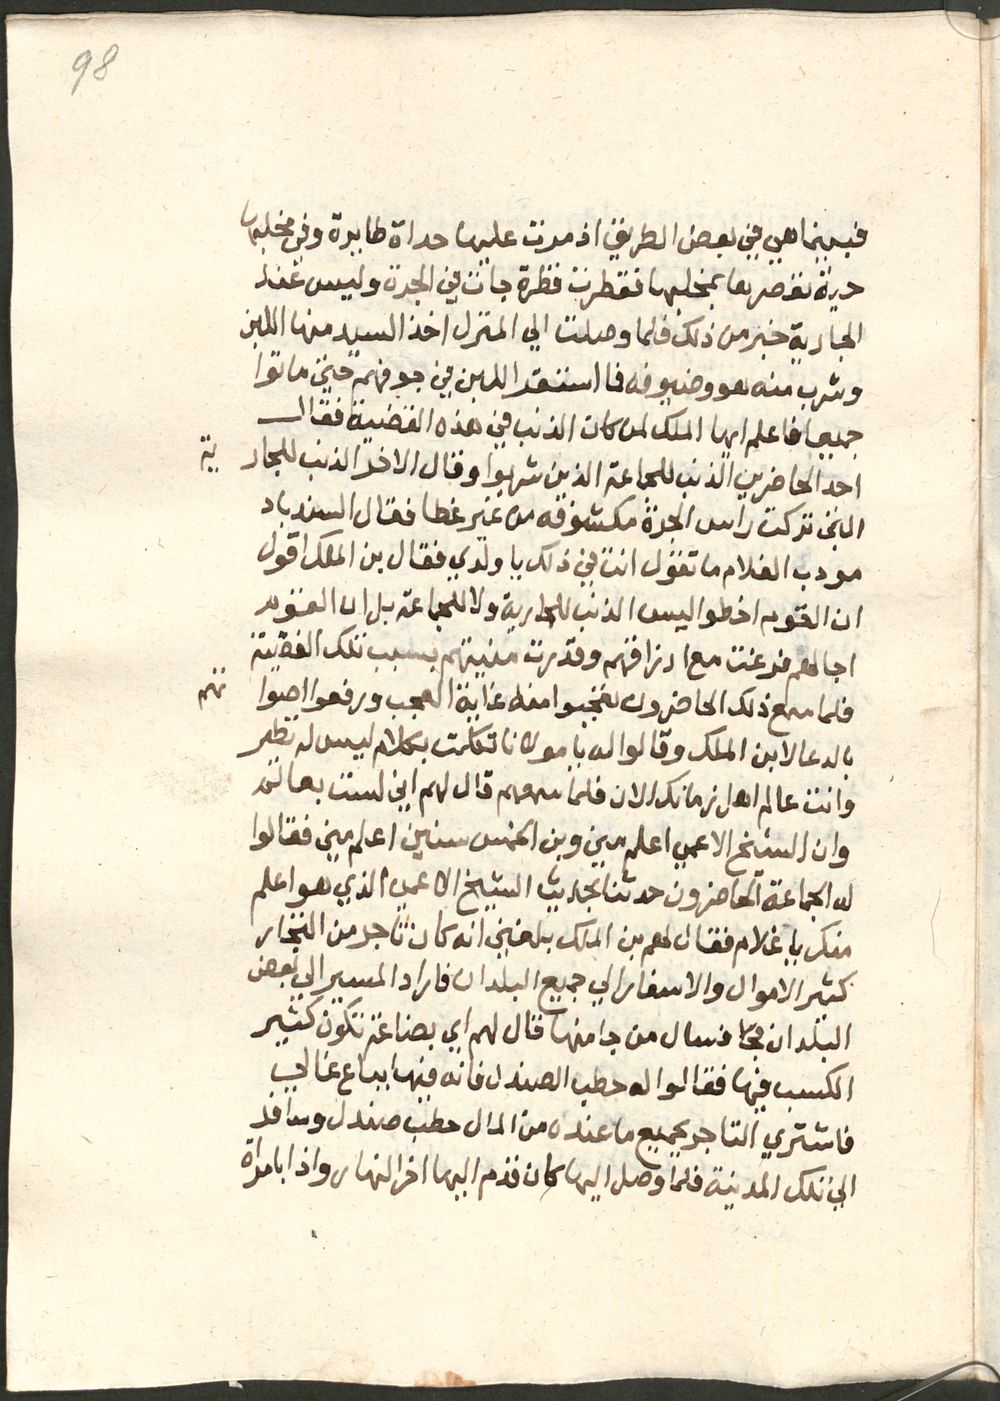 98
فبينما هي في بعض الطريق اذ مرت عليها حداة طايرة وفي مخلبها
حية تعصرها بمخلبها فقطرت قطرة جات في الجرة وليس عند
الجارية خبر من ذلك فلما وصلت الي المنزل اخذ السيد منها اللبن
وشرب منه هو وضيوفه فما استقر اللبن في جوفهم حتي ماتوا
جميعا فاعلم ايها الملك لمن كان الذنب في هذه القضية فقال
احد الحاضرين الذنب للجماعة الذين شربوا وقال الاخر الذنب للجار ية
التي تركت راس الجرة مكشوفه من غير غطا فقال السندباد
مودب الغلام ما تقول انت في ذلك يا ولدي فقال بن الملك اقول
ان القوم اخطوا ليس الذنب للجارية ولا للجماعة بل ان القوم
اجالهم فرغت مع ارزاقهم وقدرت منيتهم بسبب تلك القضية
فلما سمع ذلك الحاضرون تعجبوا منه غاية العجب ورفعوا اصوا تهم
بالدعا لابن الملك وقالوا له يا مولانا تكلمت بكلام ليس له نظير
وانت عالم اهل زمانك الان فلما سمعهم قال لهم اني لست بعالم
وان الشيخ الاعمي اعلم مني وبن الخمس سنين اعلم مني فقالوا
له الجماعة الحاضرون حدثنا بحديث الشيخ الاعمي الذي هو اعلم
منك يا غلام فقال لهم بن الملك بلغني انه كان تاجر من التجار
كثير الاموال والاسفار الي جميع البلدان فاراد المسير الي بعض
البلدان فسال من جا منها قال لهم اي بضاعة تكون كثير
الكسب فيها فقالوا له حطب الصندل فانه فيها يباع غالي
فاشتري التاجر بجميع ما عنده من المال حطب صندل وسافر
الي تلك المدينة فلما وصل اليها كان قدم اليها اخر النهار واذا بامراة